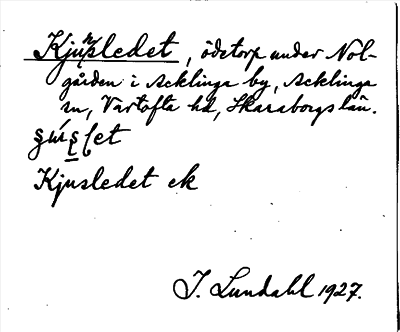 Kjunsledet, ödetorp under Nol-
gården i Acklinga by, Acklinga
sn, Vartofta hd, Skaraborgs län.
Kjusledet ek
I. Lundahl 1927.